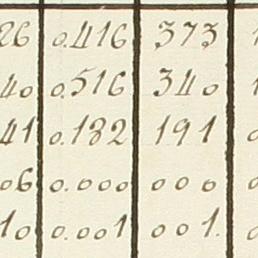 26 0.416 373
40 0.516 340
41 0.132 191
06 0.000 000
10 0.001 001.